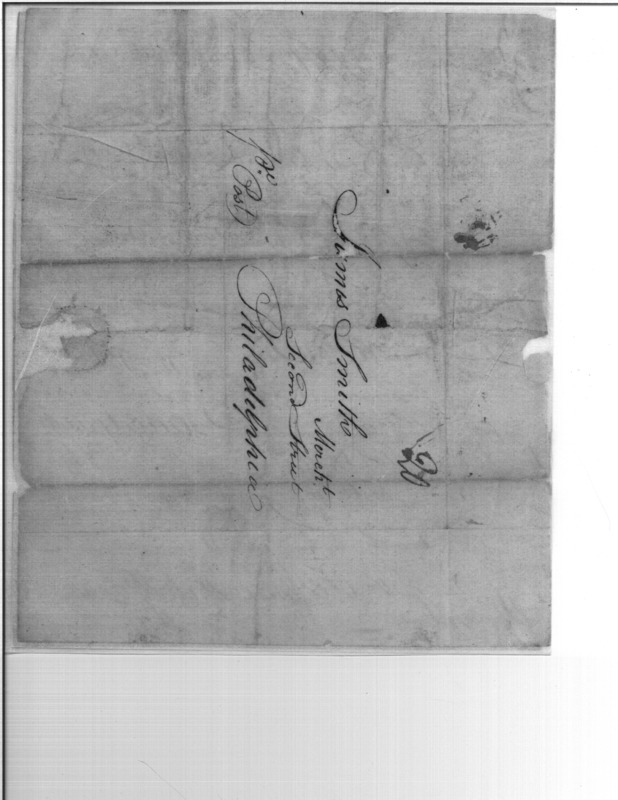 20
James Smith
Mercht
Second Street
Philadelphia
pr. Post